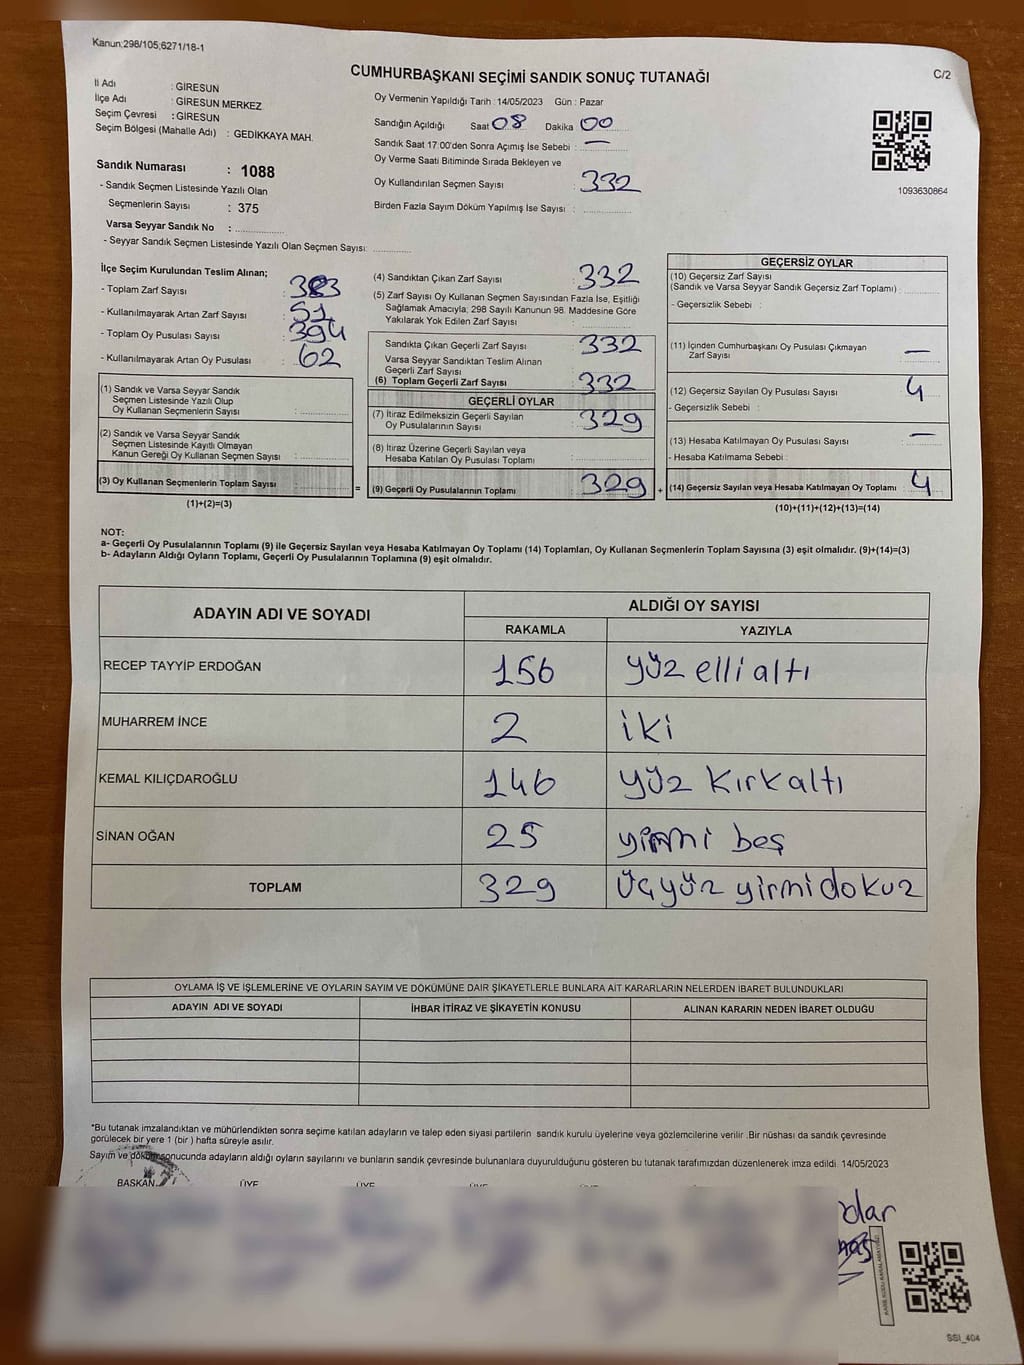 Kanun;298/105;6271/18-1
C/2
CUMHURBAŞKANI SEÇİMİ SANDIK SONUÇ TUTANAĞI
İl Adı : GİRESUN
İlçe Adı : GİRESUN MERKEZ
Seçim Çevresi : GİRESUN
Seçim Bölgesi (Mahalle Adı) : GEDİKKAYA MAH.
Sandık Numarası : 1088
- Sandık Seçmen Listesinde Yazılı Olan
Seçmenlerin Sayısı : 375
Varsa Seyyar Sandık No :
- Seyyar Sandık Seçmen Listesinde Yazılı Olan Seçmen Sayısı:
Oy Vermenin Yapıldığı Tarih : 14/05/2023 Gün : Pazar
Sandığın Açıldığı Saat 08 Dakika 00
Sandık Saat 17:00'den Sonra Açımış İse Sebebi : —
Oy Verme Saati Bitiminde Sırada Bekleyen ve
Oy Kullandırılan Seçmen Sayısı : 332
Birden Fazla Sayım Döküm Yapılmış İse Sayısı :
1093630864
İlçe Seçim Kurulundan Teslim Alınan;
- Toplam Zarf Sayısı : 383
- Kullanılmayarak Artan Zarf Sayısı : 51
- Toplam Oy Pusulası Sayısı : 394
- Kullanılmayarak Artan Oy Pusulası : 62
(1) Sandık ve Varsa Seyyar Sandık
Seçmen Listesinde Yazılı Olup
Oy Kullanan Seçmenlerin Sayısı :
(2) Sandık ve Varsa Seyyar Sandık
Seçmen Listesinde Kayıtlı Olmayan
Kanun Gereği Oy Kullanan Seçmen Sayısı :
(3) Oy Kullanan Seçmenlerin Toplam Sayısı
(1)+(2)=(3)
(4) Sandıktan Çıkan Zarf Sayısı : 332
(5) Zarf Sayısı Oy Kullanan Seçmen Sayısından Fazla İse, Eşitliği
Sağlamak Amacıyla; 298 Sayılı Kanunun 98. Maddesine Göre
Yakılarak Yok Edilen Zarf Sayısı :
Sandıkta Çıkan Geçerli Zarf Sayısı : 332
Varsa Seyyar Sandıktan Teslim Alınan
Geçerli Zarf Sayısı :
(6) Toplam Geçerli Zarf Sayısı : 332
GEÇERLİ OYLAR
(7) İtiraz Edilmeksizin Geçerli Sayılan
Oy Pusulalarının Sayısı : 329
(8) İtiraz Üzerine Geçerli Sayılan veya
Hesaba Katılan Oy Pusulası Toplamı :
= (9) Geçerli Oy Pusulalarının Toplamı : 329
GEÇERSİZ OYLAR
(10) Geçersiz Zarf Sayısı
(Sandık ve Varsa Seyyar Sandık Geçersiz Zarf Toplamı) :
- Geçersizlik Sebebi :
(11) İçinden Cumhurbaşkanı Oy Pusulası Çıkmayan
Zarf Sayısı : —
(12) Geçersiz Sayılan Oy Pusulası Sayısı : 4
- Geçersizlik Sebebi :
(13) Hesaba Katılmayan Oy Pusulası Sayısı : —
- Hesaba Katılmama Sebebi :
+ (14) Geçersiz Sayılan veya Hesaba Katılmayan Oy Toplamı : 4
(10)+(11)+(12)+(13)=(14)
NOT:
a- Geçerli Oy Pusulalarının Toplamı (9) ile Geçersiz Sayılan veya Hesaba Katılmayan Oy Toplamı (14) Toplamları, Oy Kullanan Seçmenlerin Toplam Sayısına (3) eşit olmalıdır. (9)+(14)=(3)
b- Adayların Aldığı Oyların Toplamı, Geçerli Oy Pusulalarının Toplamına (9) eşit olmalıdır.
ADAYIN ADI VE SOYADI
ALDIĞI OY SAYISI
RAKAMLA YAZIYLA
RECEP TAYYİP ERDOĞAN 156 yüz elli altı
MUHARREM İNCE 2 iki
KEMAL KILIÇDAROĞLU 146 yüz kırk altı
SİNAN OĞAN 25 yirmi beş
TOPLAM 329 Üçyüz yirmi dokuz
OYLAMA İŞ VE İŞLEMLERİNE VE OYLARIN SAYIM VE DÖKÜMÜNE DAİR ŞİKAYETLERLE BUNLARA AİT KARARLARIN NELERDEN İBARET BULUNDUKLARI
ADAYIN ADI VE SOYADI İHBAR İTİRAZ VE ŞİKAYETİN KONUSU ALINAN KARARIN NEDEN İBARET OLDUĞU
*Bu tutanak imzalandıktan ve mühürlendikten sonra seçime katılan adayların ve talep eden siyasi partilerin sandık kurulu üyelerine veya gözlemcilerine verilir .Bir nüshası da sandık çevresinde
görülecek bir yere 1 (bir ) hafta süreyle asılır.
Sayım ve döküm sonucunda adayların aldığı oyların sayılarını ve bunların sandık çevresinde bulunanlara duyurulduğunu gösteren bu tutanak tarafımızdan düzenlenerek imza edildi. 14/05/2023
BAŞKAN ÜYE ÜYE ÜYE
SSI_404